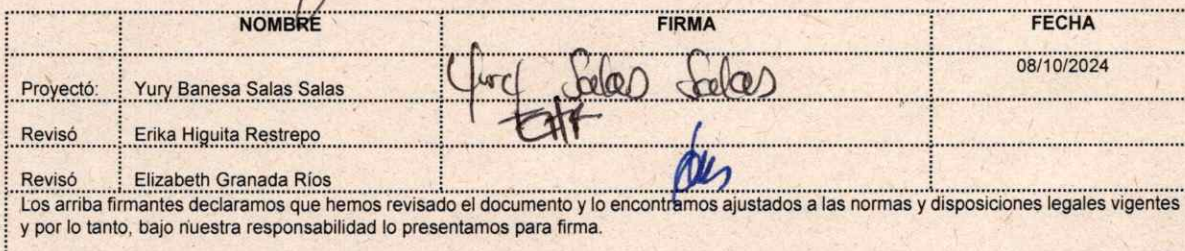 NOMBRE FIRMA FECHA
Proyectó: Yury Banesa Salas Salas Yury Salas Salas 08/10/2024
Revisó Erika Higuita Restrepo EHR
Revisó Elizabeth Granada Ríos
Los arriba firmantes declaramos que hemos revisado el documento y lo encontramos ajustados a las normas y disposiciones legales vigentes
y por lo tanto, bajo nuestra responsabilidad lo presentamos para firma.